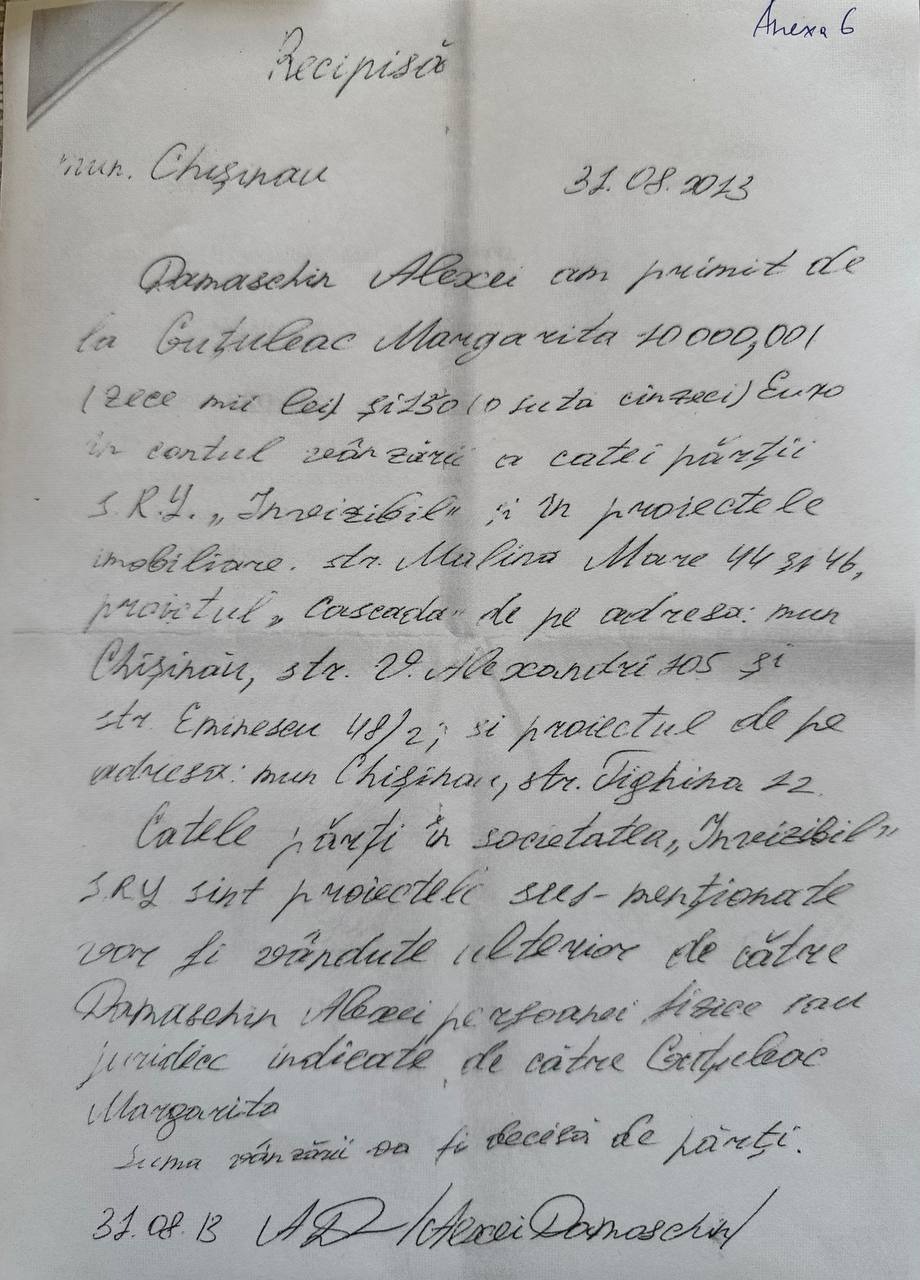 Anexa 6
Recipisă
mun. Chișinau 31.08.2013
Damaschin Alexei am primit de
la Guțuleac Margarita 10 000,00 l
(zece mii lei) și 150 (o suta cinzeci) Euro
în contul vânzării a catei părții
S.R.L. „Invizibil" și în proiectele
imobiliare. str. Malina Mare 44 și 46,
proiectul „Cascada" de pe adresa: mun
Chișinău, str. V. Alexandri 105 și
str Eminescu 48/2; si proiectul de pe
adresa: mun Chișinau, str. Tighina 12.
Catele părți în societatea „Invizibil"
S.R.L sint proiectele sus-menționate
vor fi vândute ulterior de către
Damaschin Alexei persoanei fizice sau
juridice indicate de către Guțuleac
Margarita
Suma vânzării va fi decisă de părți.
31.08.13 AD /Alexei Damaschin/